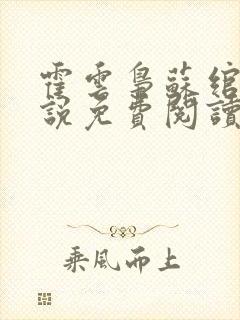 霍雲梟蘇綰
說免費閱讀
乘風而上